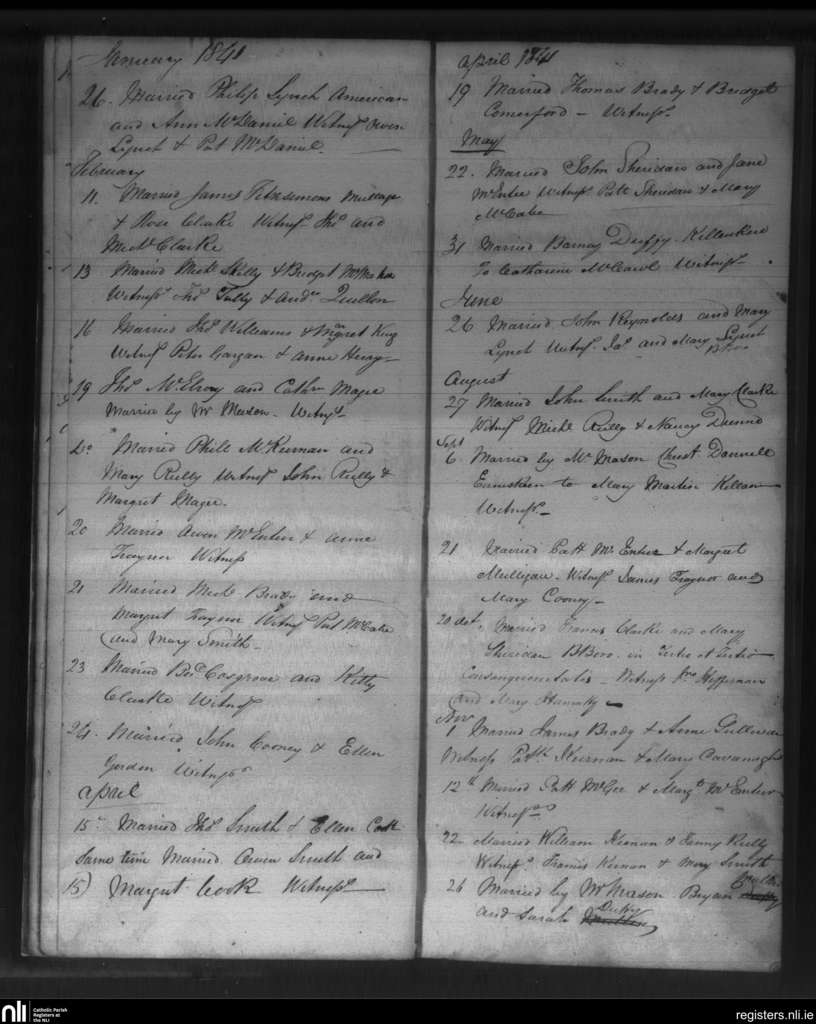 January 1841
26. Married Philip Lynch American
and Ann McDaniel Witnes Owen
Lynch & Pat McDaniel.
February
11. Married James Fitzsimons
& Rose Clarke Witnes. Thos and
Michl Clarke
13 Married Michl Skelly & Bridget
Witness Thos Tully & Andw
16 Married Thos Williams & Margret King
Witnes Peter Gargan & Anne Henry
19 Thos McElroy and Cathr Magee
Married by Mr Mason. Witnes.
Do Married Phill McKiernan and
Mary Reilly Witnes John Reilly &
Margret Magee.
20 Married Owen McEntee & Anne
Traynor Witness
21 Married Michl Brady and
Margret Traynor Witness Pat McCabe
and Mary Smith.
23 Married Cosgrove and Kitty
Clarke Witnes
24. Married John Cooney & Ellen
Gordon Witness
April
15 Married Thos Smith & Ellen Cook
Same time Married Owen Smith and
15) Margret Cook Witness
April 1841
19 Married Thomas Brady & Bridget
Comerford - Witness.
May
22. Married John Sheridan and Jane
McEntee Witness Patt Sheridan & Mary
McCabe
31 Married Barney Duffy Killenkere
To Catharine Witness
June
26 Married John Reynolds and Mary
Lynch Witnes. Jas and Mary Lynch
August
27 Married John Smith and Mary Clarke
Witnes Michl Reilly & Nancy
Sept
6 Married by Mr Mason
to Mary Martin
Witness
21 Married Patt McEntee & Margret
Mulligan. Witness James Traynor and
Mary Cooney
20 Oct. Married Francis Clarke and Mary
Sheridan BBoro. in Tertio et Tertio
Consanguinitatis - Witness Jno Heffernan
and Mary
Nov
1 Married James Brady & Anne
Witness Patk Kiernan & Mary Cavanagh
12th Married Patt McGee & Margt McEntee
Witness
22 Married William Keenan & Fanny Reilly
Witness Francis Kernan & Mary Smith
26 Married by Mr Mason Bryan
and Sarah
nli
Catholic Parish
Registers at
the NLI
registers.nli.ie